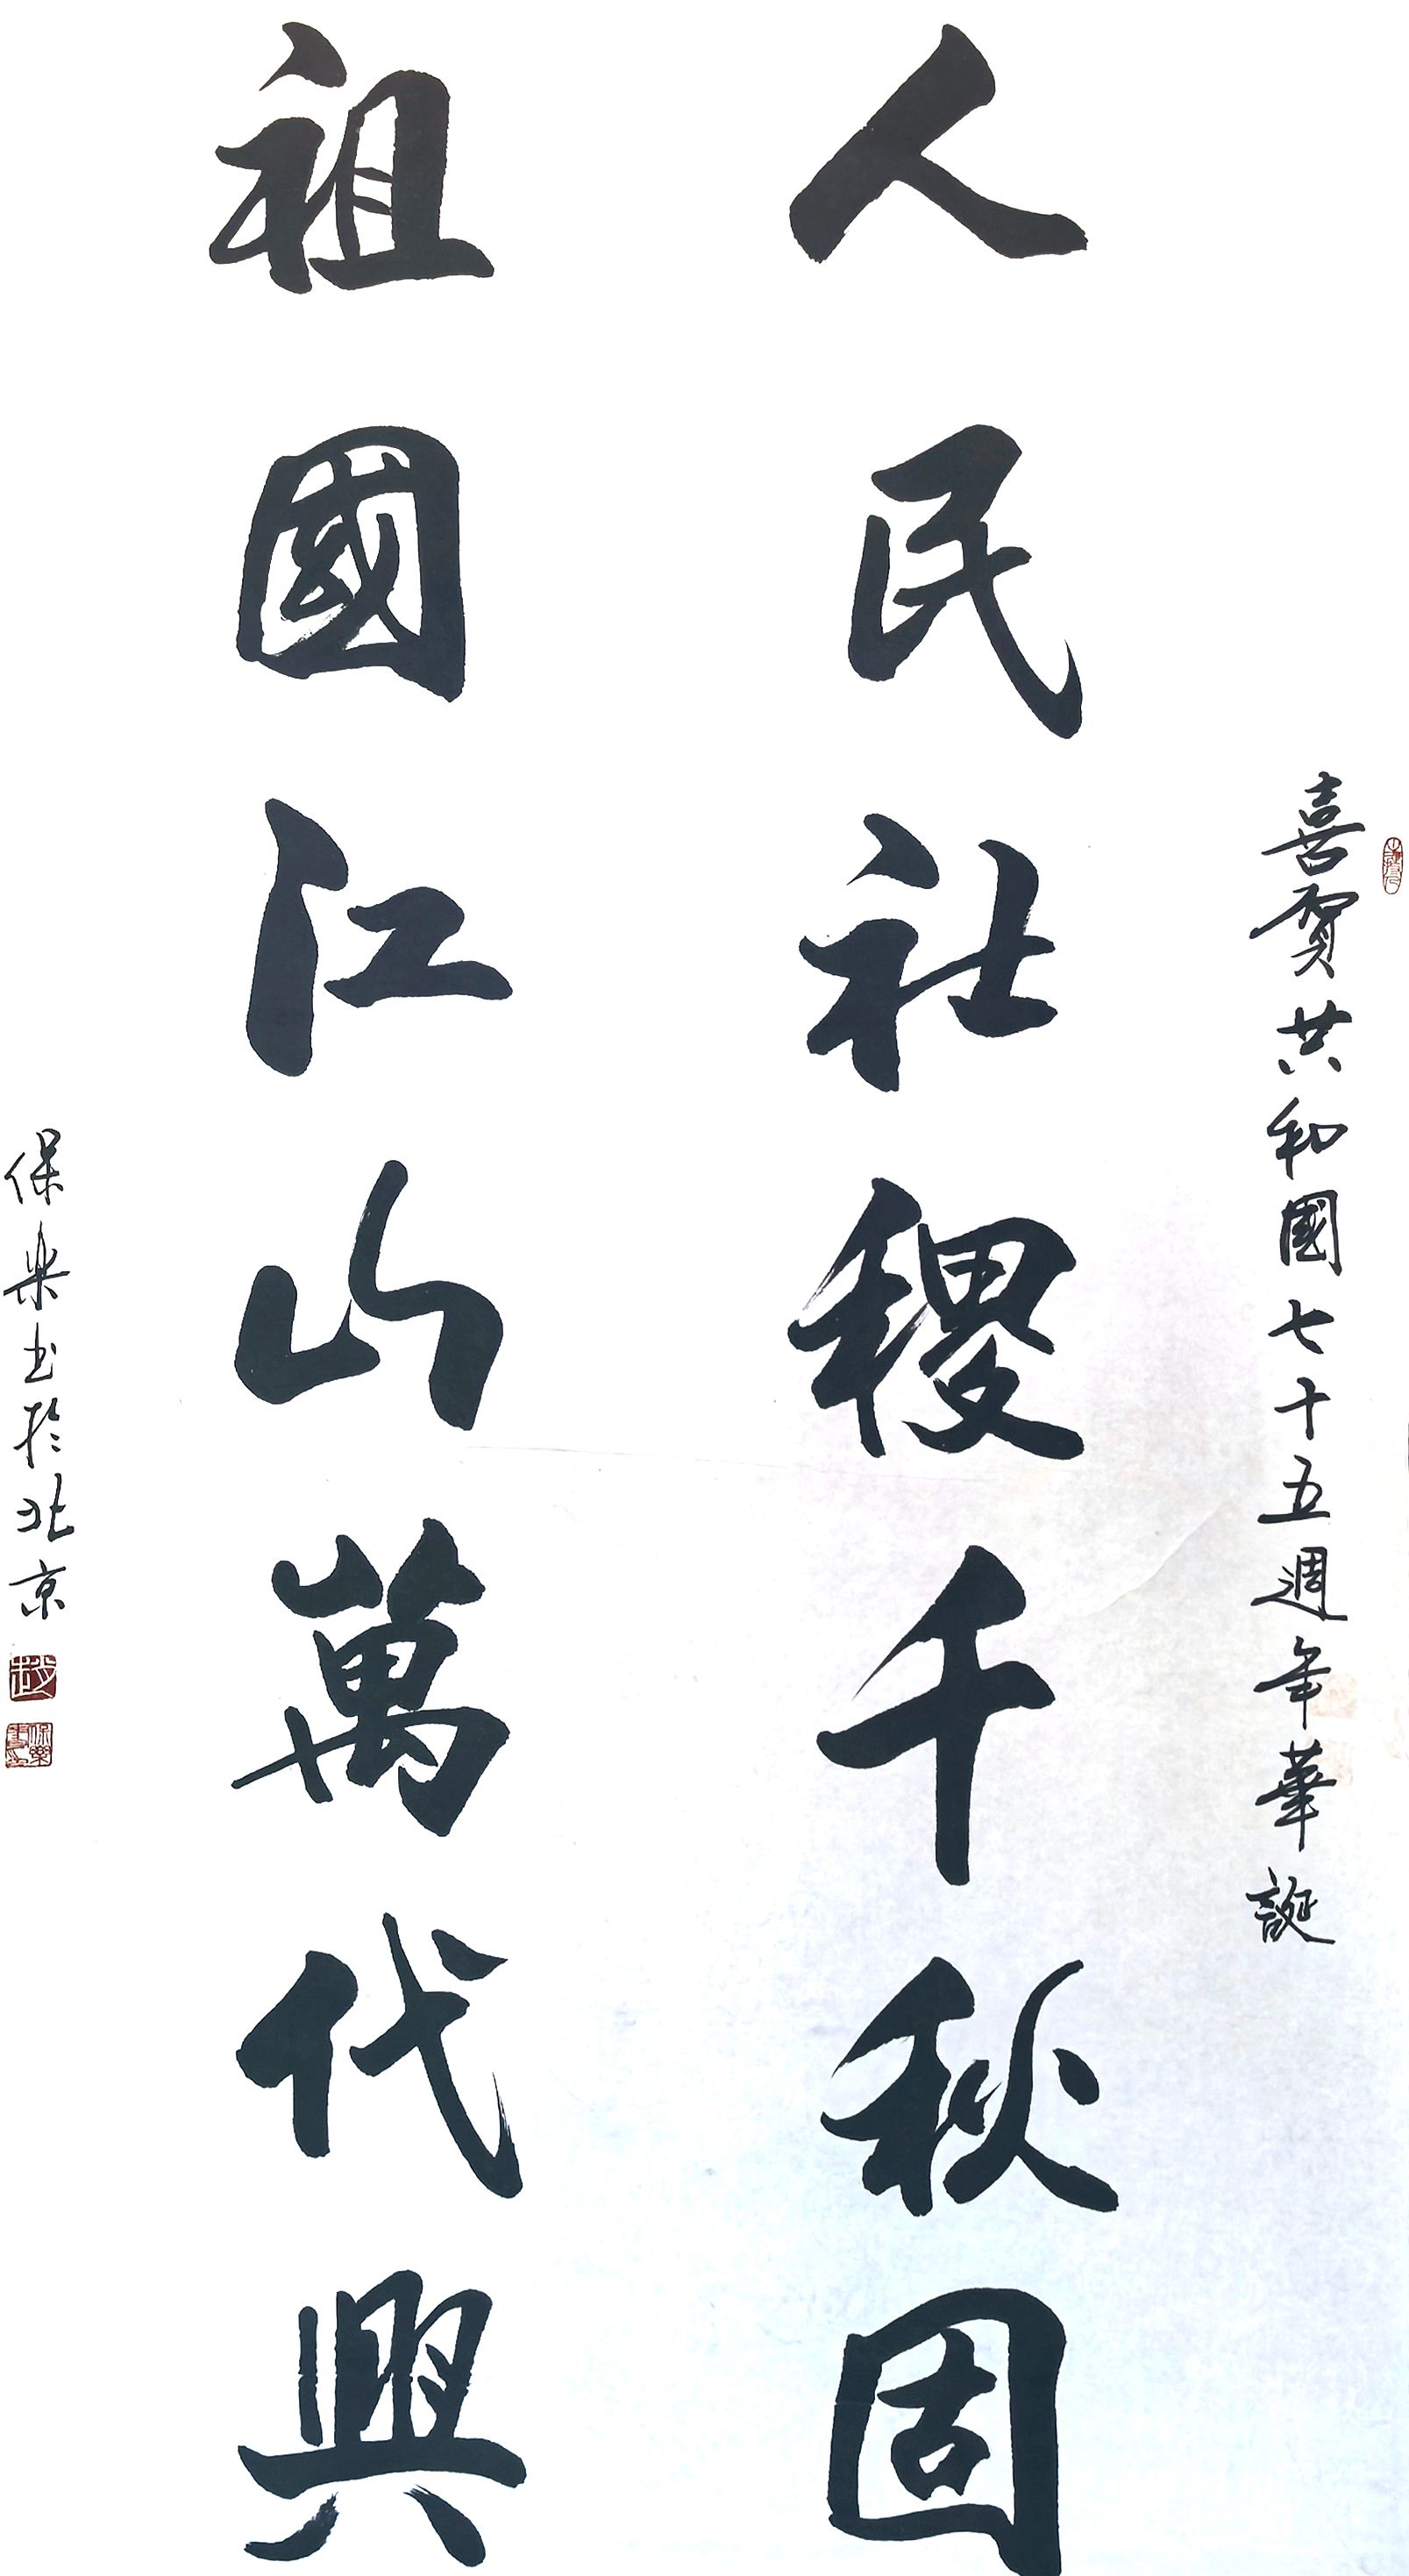 喜賀共和國七十五週年華誕
人民社稷千秋固
祖國江山萬代興
保樂书於北京
趙